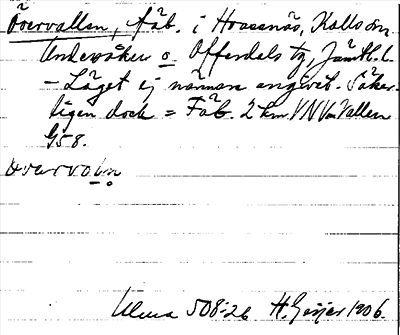 Övervallen, fäb. i Hoassnäs, Kalls sn
Undersåker o. Offerdals tg, Jämtl. l.
– Läget ej närmare angivet. Säker-
ligen dock = Fäb. 2 km VNV om Vallen
G58.
övarvoḷṇ
Ulma 508:26 H. Geijer 1906.